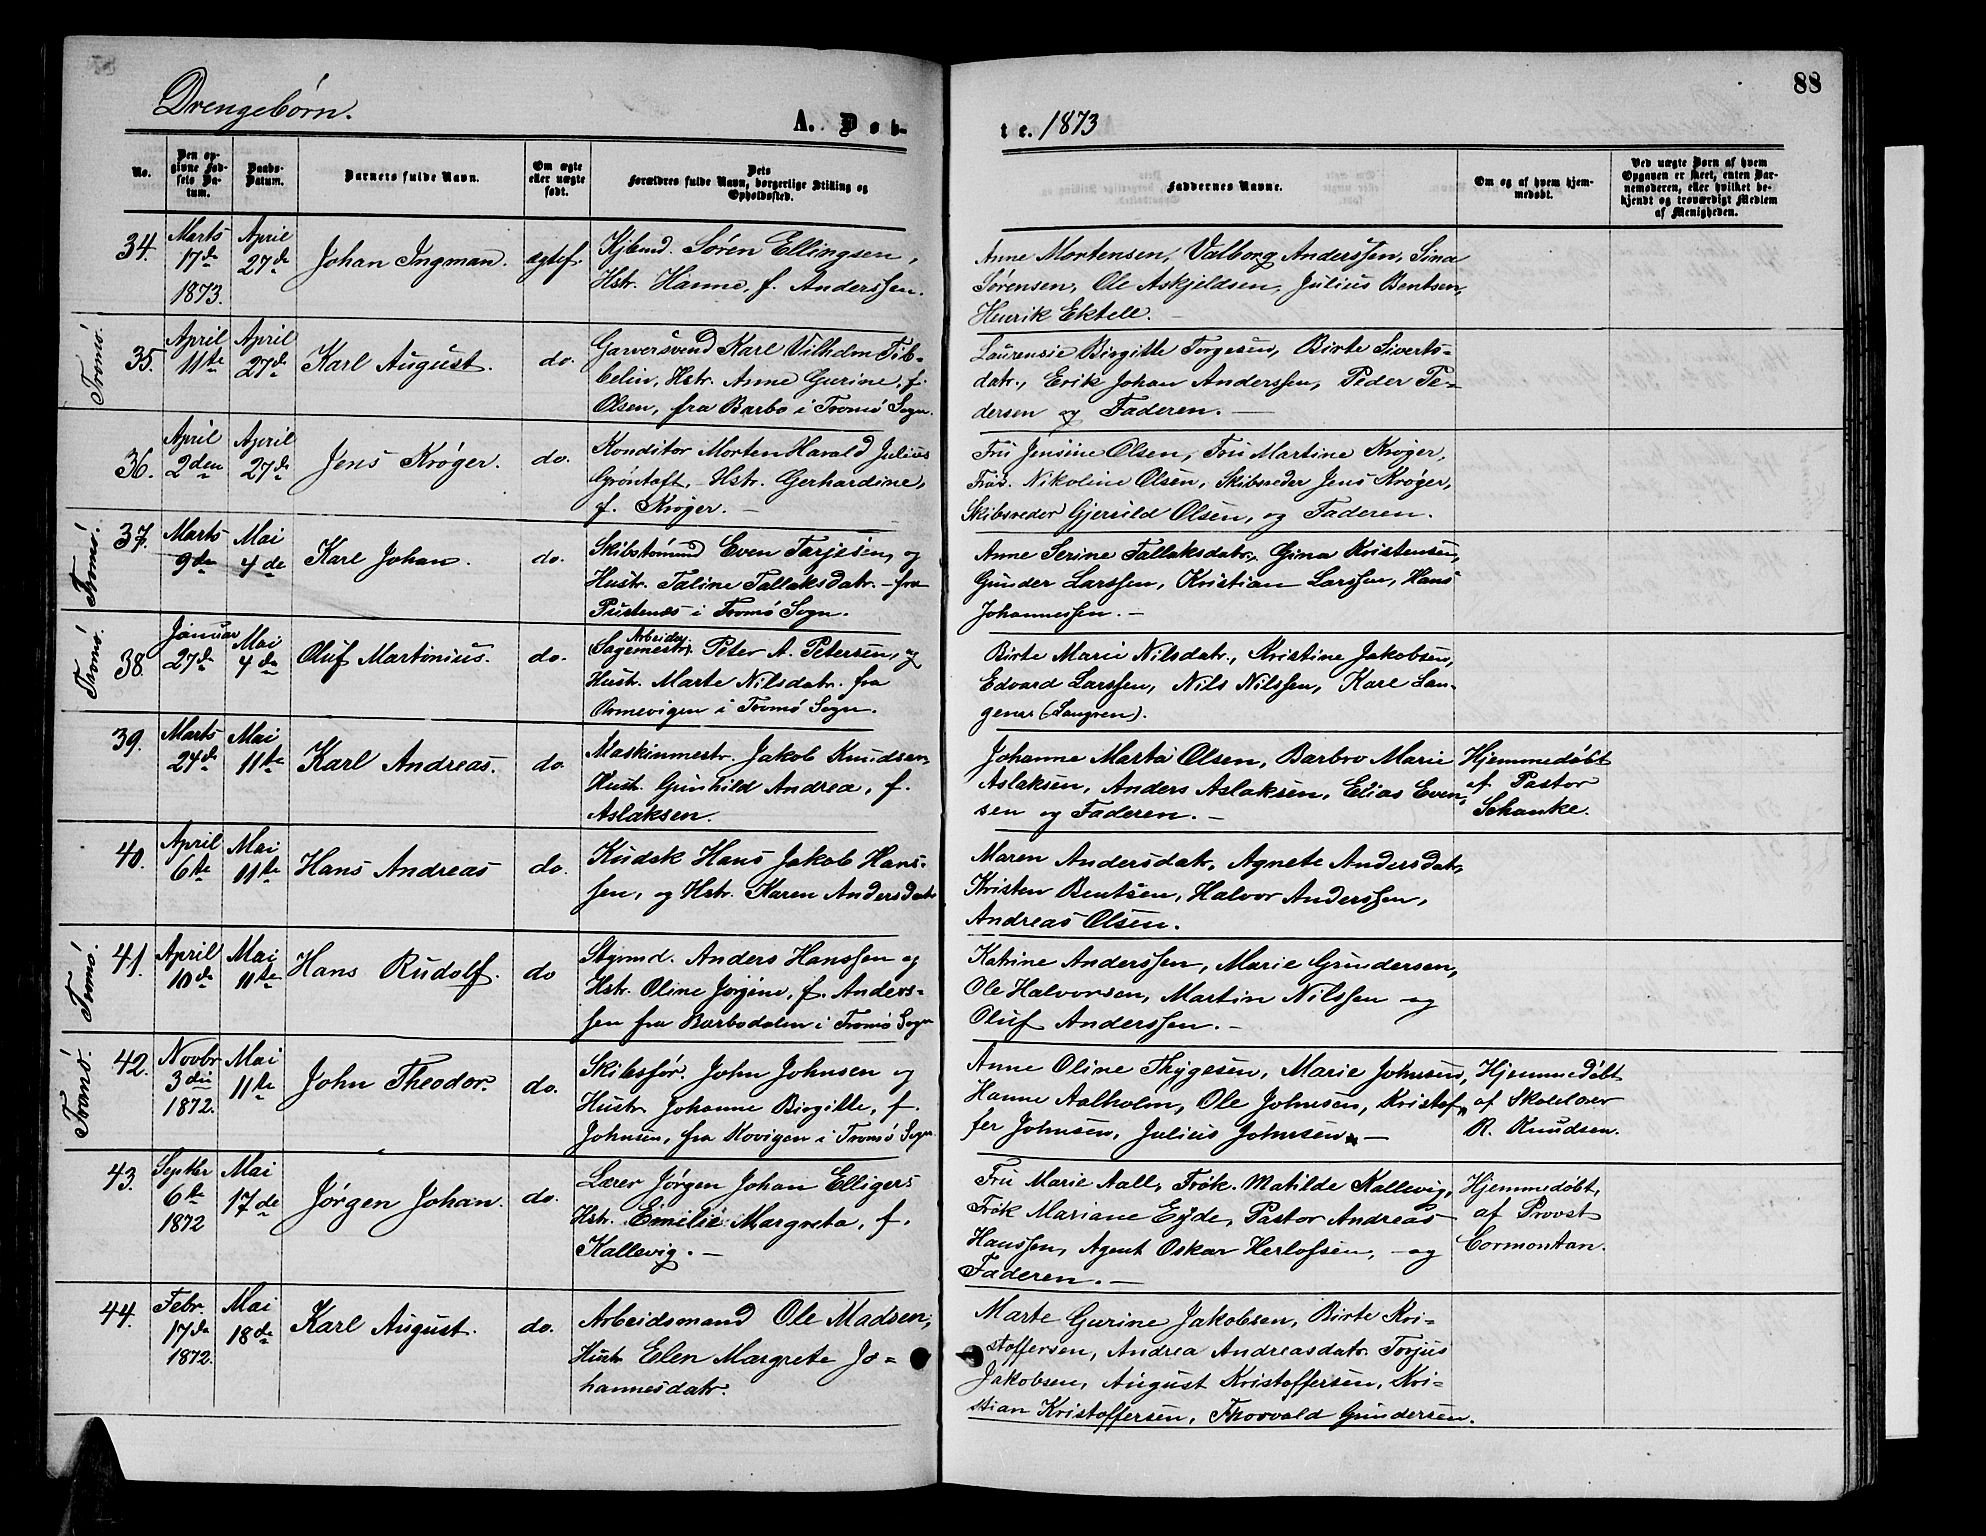 88
Drengebørn.
A. Døb-
te. 1873
No.
Den op-
givne Fød-
sels Da-
tum.
Daabs-
Datum.
Barnets fulde Navn.
Om ægte
eller uægte
født.
Dets
Forældres fulde Navn, borgerlige Stilling og
Opholdssted.
Faddernes Navne.
Om og af hvem hjem-
medøbt.
Ved uægte Børn af hvem
Opgaven er skeet, enten Bar-
nemoderen, eller hvilket be-
kjendt og troværdigt Medlem
af Menigheden.
34.
Marts
17de
1873.
April
27de
Johan Ingman.
ægtef.
Kjbmd. Søren Ellingsen,
Hstr. Hanne, f. Anderssen.
Anne Mortensen, Valborg Anderssen, Sina
Sørensen, Ole Askjeldsen, Julius Bentsen,
Henrik Ektell.
Tromø.
35.
April
11te
April
27de
Karl August.
do.
Garversvend Karl Vilhelm Tib-
belin, Hstr. Anne Gurine, f.
Olsen, fra Barbo i Tromø Sogn.
Laurensie Birgitte Torgesen, Birte Siverts-
datr., Erik Johan Anderssen, Peder Pe-
dersen og Faderen. —
36.
April
2den
April
27de
Jens Krøger.
do.
Konditor Morten Harald Julius
Grøntoft, Hstr. Gerhardine,
f. Krøger. —
Fru Jensine Olsen, Fru Martine Krøger,
Frøk. Nikoline Olsen, Skibsreder Jens Krøger,
Skibsreder Gjeruld Olsen, og Faderen.
Tromø.
37.
Marts
9de
Mai
4de
Karl Johan.
do.
Skibstømmd Even Tarjesen, og
Hustr. Taline Tallaksdatr. — fra
Pusnes i Tromø Sogn.
Anne Serine Tallaksdatr., Gina Kristensen,
Gunder Larssen, Kristian Larssen, Hans
Johannessen. —
Tromø.
38.
Januar
27de
Mai
4de
Oluf Martinius.
do.
Arbeider
Sagemestr. Peter A. Petersen, og
Hustr. Marte Nilsdatr. fra
Ormevigen i Tromø Sogn.
Birte Marie Nilsdatr., Kristine Jakobsen,
Edvard Larssen, Nils Nilssen, Karl Lan-
genes (Langren).
39.
Marts
24de
Mai
11te
Karl Andreas.
do.
Maskinmestr. Jakob Knudsen,
Hustr. Gunhild Andrea, f.
Aslaksen.
Johanne Marta Olsen, Barbro Marie
Aslaksen, Anders Aslaksen, Elias Even-
sen og Faderen. —
Hjemmedøbt
af Pastor
Schanke.
40.
April
6te
Mai
11te
Hans Andreas
do.
Kudsk Hans Jakob Hans-
sen, og Hstr. Karen Andersdatr
Maren Andersdatr, Agnete Andersdatr,
Kristen Bentsen, Halvor Anderssen,
Andreas Olsen.
Tromø.
41.
April
10de
Mai
11te
Hans Rudolf.
do
Styrmd. Anders Hanssen og
Hstr. Oline Jørgine, f. Anders-
sen fra Barbodalen i Tromø Sogn
Katrine Anderssen, Marie Gundersen,
Ole Halvorsen, Martin Nilssen og
Oluf Anderssen. —
Tromø.
42.
Novbr
3die
1872.
Mai
11te
John Theodor.
do.
Skibsfør. John Johnsen og
Hustr. Johanne Birgitte, f.
Johnsen, fra Kovigen i Tromø Sogn.
Anne Oline Thygesen, Marie Johnsen,
Hanne Aalholm, Ole Johnsen, Kristof-
fer Johnsen, Julius Johnsen. —
Hjemmedøbt
af Skolelærer
R. Knudsen.
43.
Septbr
6te
1872
Mai
17de
Jørgen Johan.
do.
Lærer Jørgen Johan Elligers
Hstr. Emilie Margreta, f.
Kallevig. —
Fru Marie Aall, Frøk. Matilde Kallevig,
Frøk Mariane Eyde, Pastor Andreas
Hanssen, Agent Oskar Herlofsen, — og
Faderen. —
Hjemmedøbt,
af Provst
Cormontan.
44.
Febr.
17de
1872.
Mai
18de
Karl August.
do.
Arbeidsmand Ole Madsen,
Hustr Elen Margrete Jo-
hannesdatr.
Marte Gurine Jakobsen, Birte Kri-
stoffersen, Andrea Andreasdatr. Torjus
Jakobsen, August Kristoffersen, Kri-
stian Kristoffersen, Thorvald Gundersen.